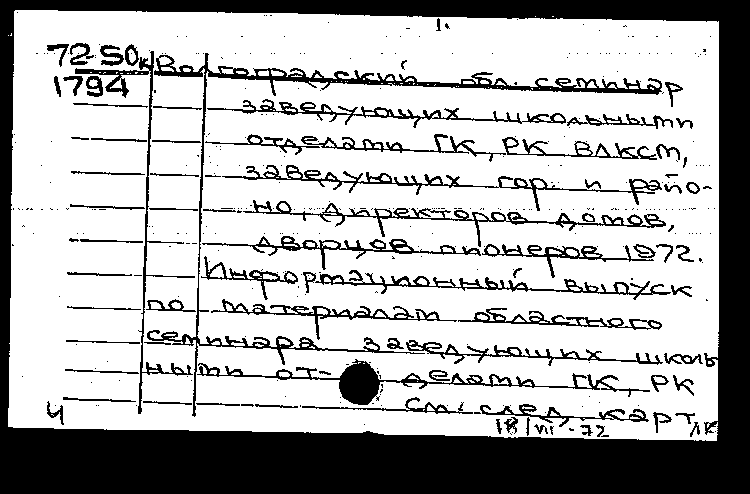 1.
72-50к Волгоградский обл. семинар
1794 заведующих школьными
отделами ГК, РК ВЛКСМ,
заведующих гор. и райо-
но, директоров домов,
дворцов пионеров, 1972.
Информационный выпуск
по материалам областного
семинара заведующих школь
ными от- делами ГК, РК
см. след. карт.
Ч 18/VII-72 ЛК